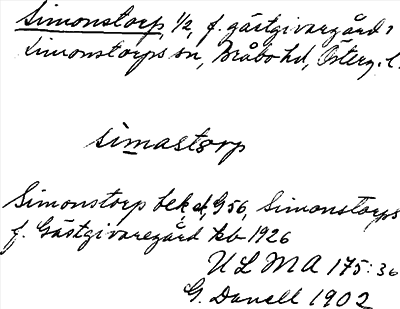 Simonstorp, 1/2, f. gästgivargård i
Simonstorps sn, Bråbo hd, Österg. l.
simastorp
Simonstorp bek, d, G 56, Simonstorps
f. Gästgivaregård kb 1926
ULMA 175:36
G. Danell 1902